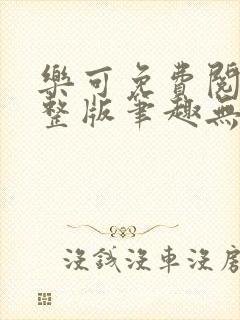 樂可免費閱
整版筆趣無
沒錢沒車沒房